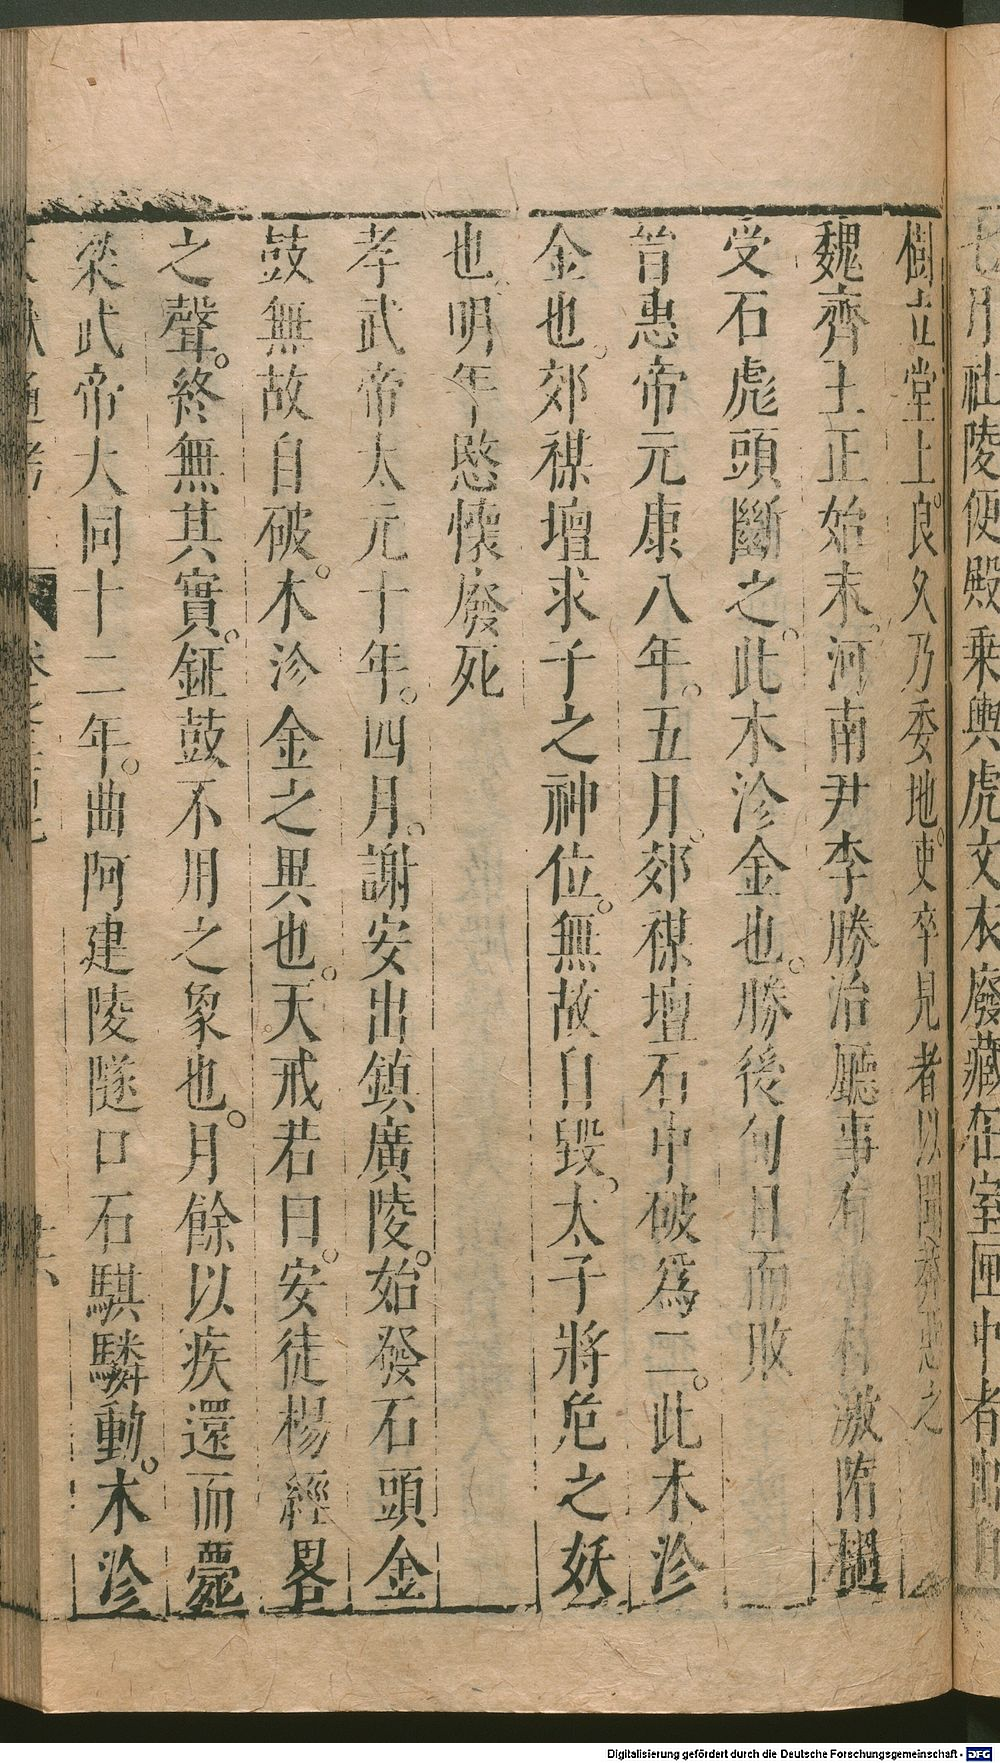 毛月社陵便殿乘輿虎文衣廢藏在室匣中者
樹立堂上良久乃委地吏卒見者以聞莽惡之
魏齊王正始末河南尹李勝治廳事有小材激隋檛
受石彪頭斷之此木沴金也勝後旬日而敗
晉惠帝元康八年五月郊禖壇石中破爲二此木沴
金也郊禖壇求子之神位無故自毀太子將危之妖
也明年愍懷廢死
孝武帝太元十年四月謝安出鎮廣陵始發石頭金
鼓無故自破木沴金之異也天戒若曰安徒楊經畧
之聲終無其實鉦鼓不用之象也月餘以疾還而薨
梁武帝大同十二年曲阿建陵隧口石騏驎動木沴
文獻通考
Digitalisierung gefördert durch die Deutsche Forschungsgemeinschaft - DFG